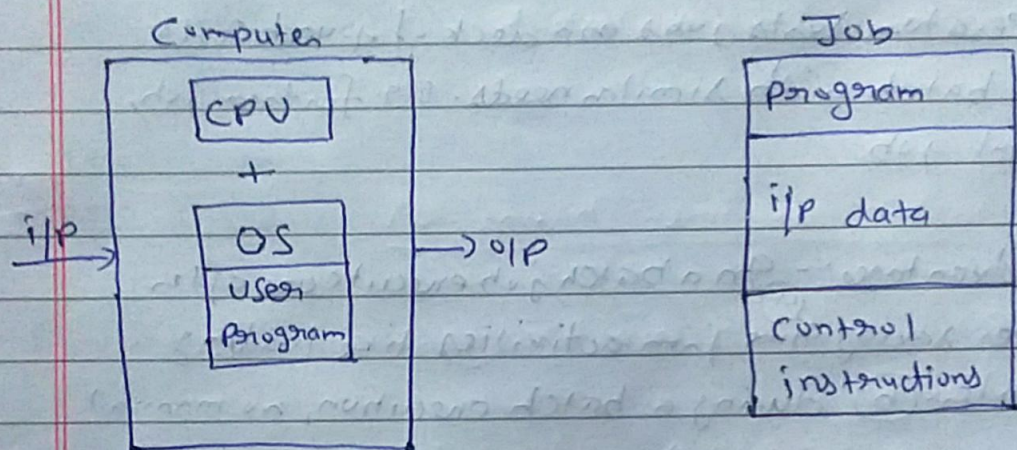 Computer
CPU
+
OS
user
program
i/p
→ o/p
Job
program
i/p data
control
instructions